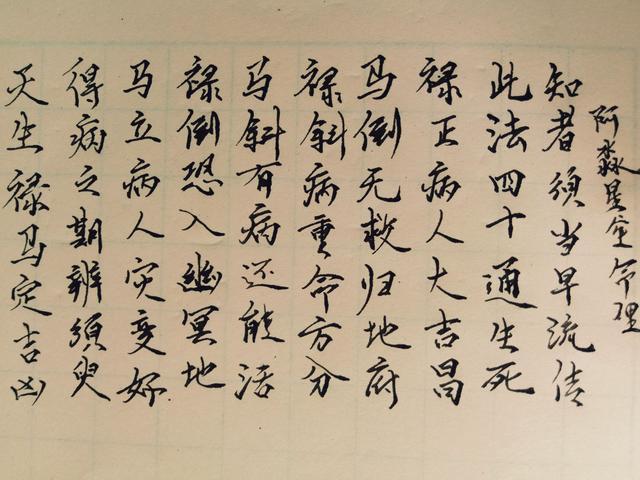 天生禄马定吉凶
得病之期辨须臾
马立病人灾变好
禄倒恐入幽冥地
马斜有病还能活
禄斜病重命方分
马倒无救归地府
禄正病人大吉昌
此法四十通生死
知者须当早流传
阿淼星座命理